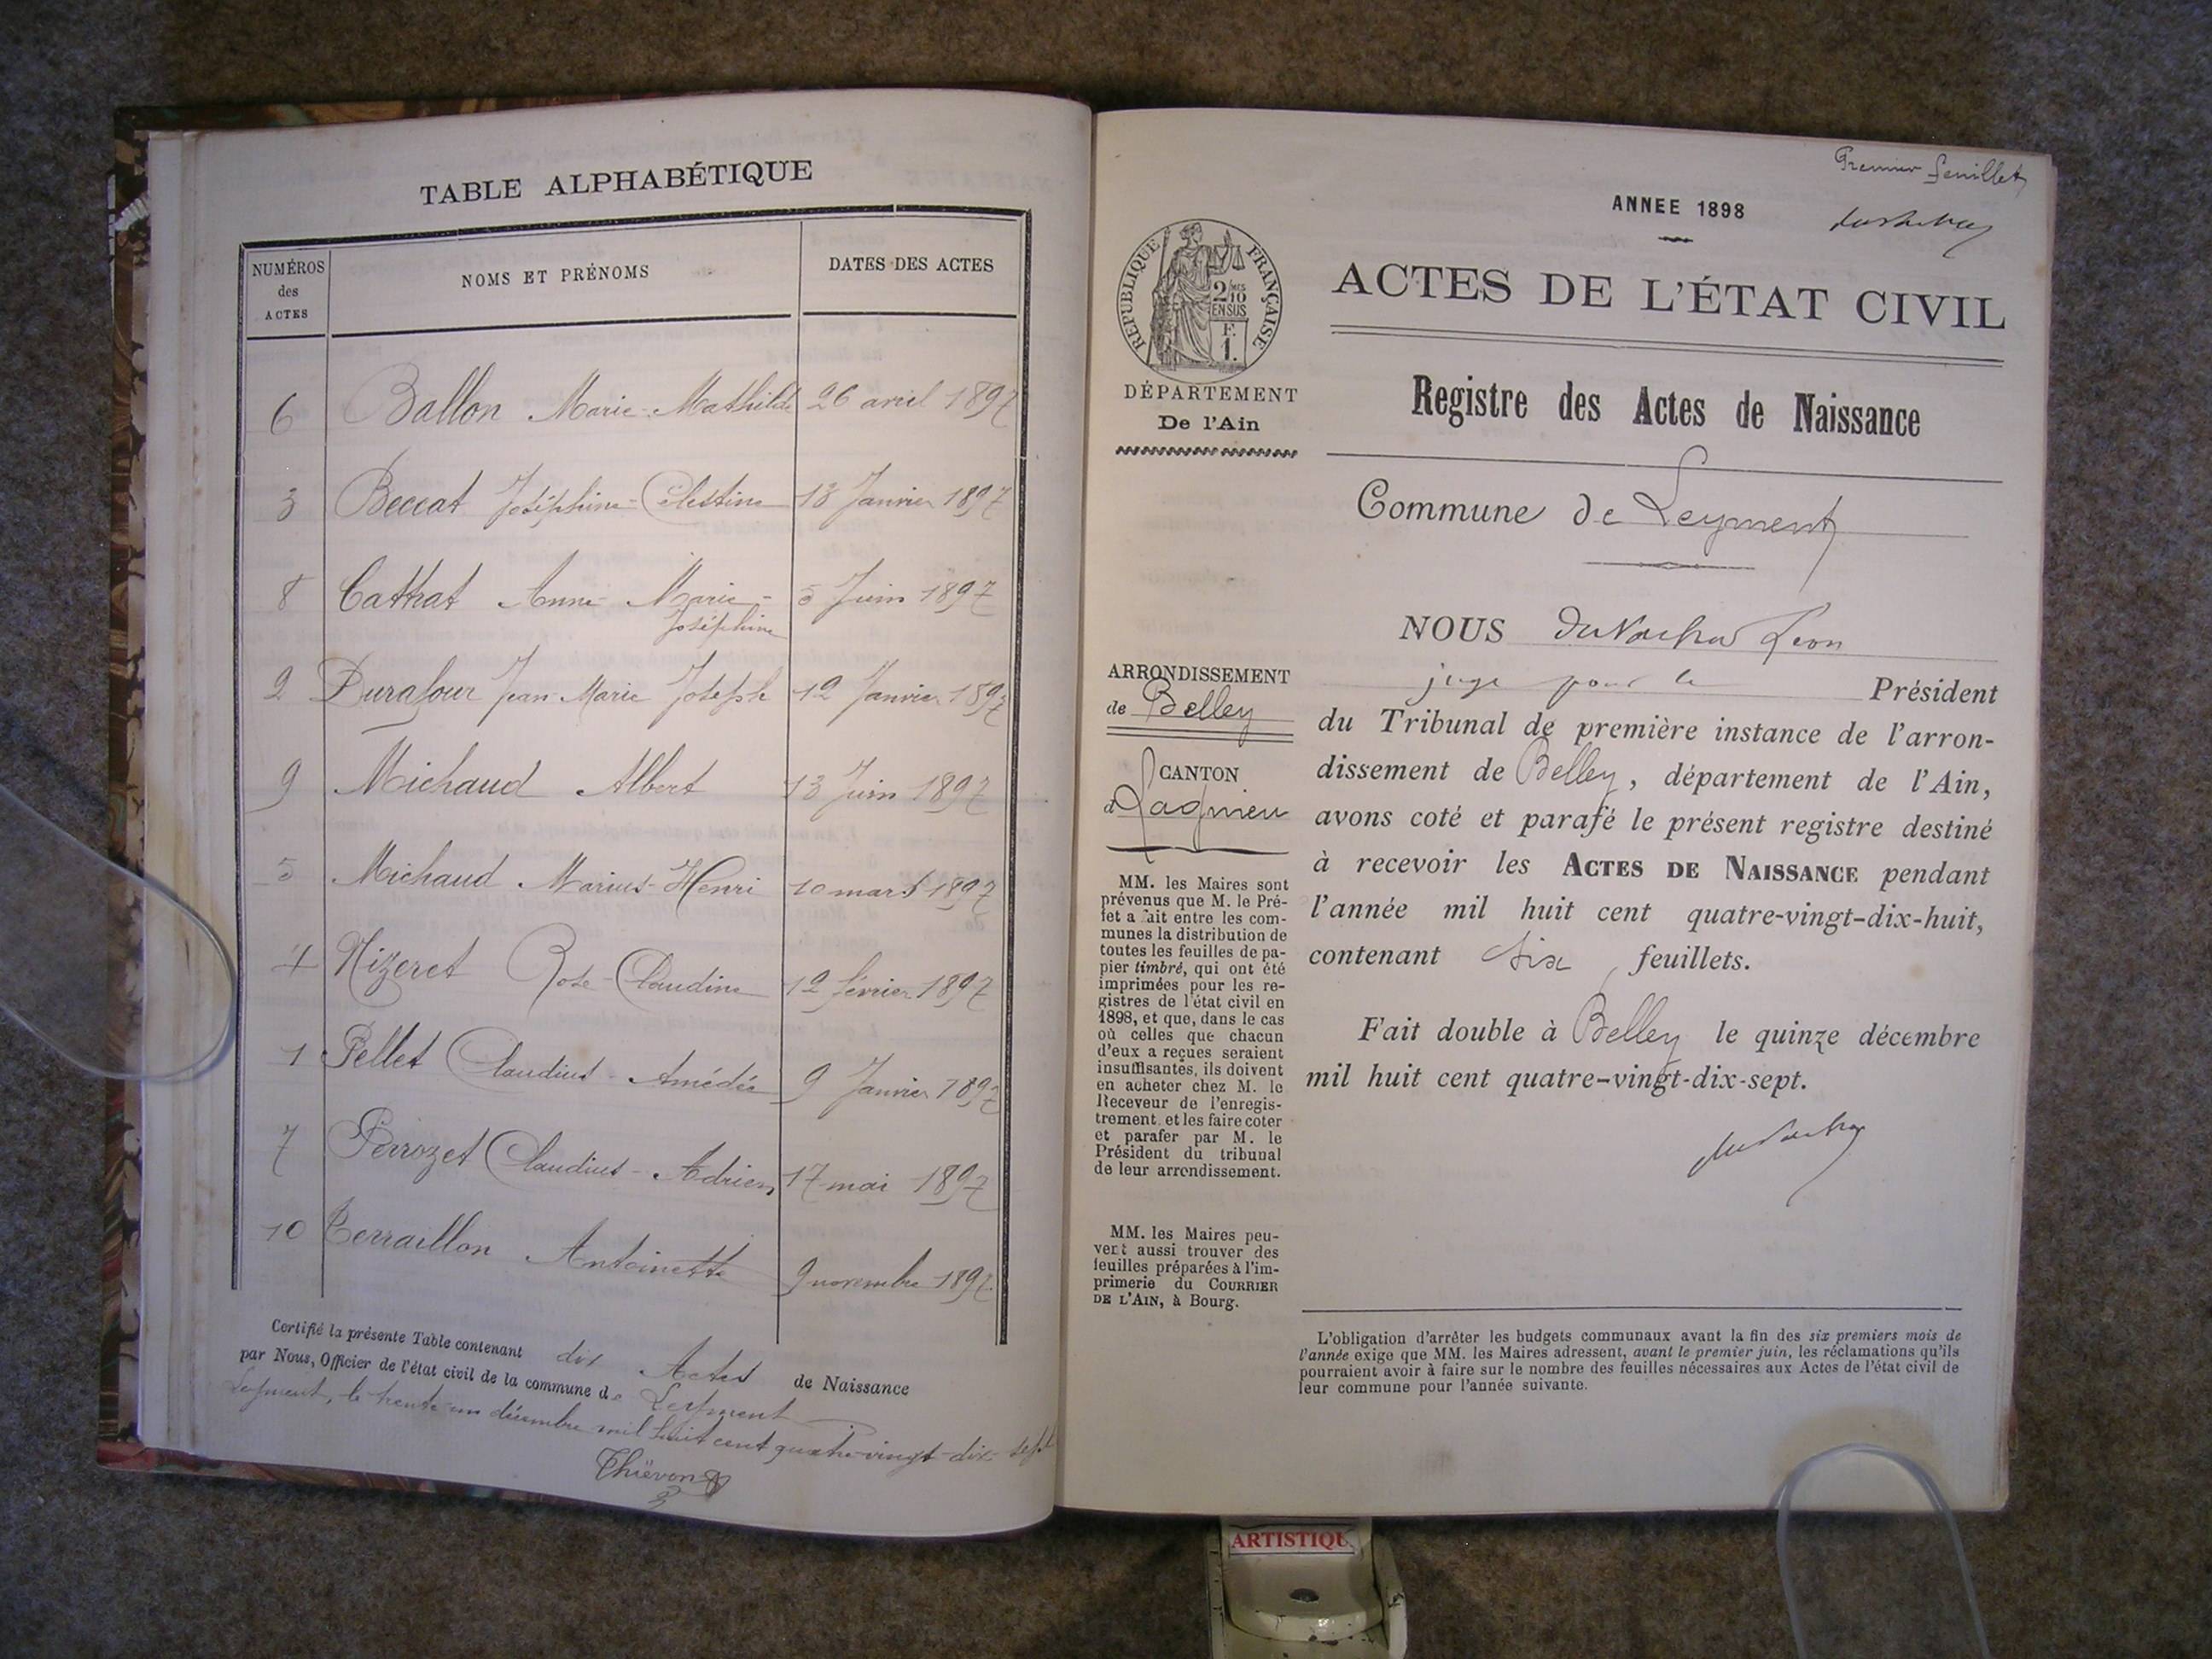 TABLE ALPHABÉTIQUE
NUMÉROS des ACTES
NOMS ET PRÉNOMS
DATES DES ACTES
6 Ballon Marie-Mathilde 26 avril 1897
3 Beccat Joséphine-Célestine 13 Janvier 1897
8 Cattrat Anne-Marie-
Joséphine 5 Juin 1897
2 Durafour Jean-Marie Joseph 12 Janvier 1897
9 Michaud Albert 13 Juin 1897
5 Michaud Marius-Henri 10 mars 1897
4 Nizeret Rose-Claudine 12 février 1897
1 Pellet Claudius-Amédée 9 Janvier 1897
7 Perrozet Claudius-Adrien 17 mai 1897
10 Terraillon Antoinette 9 novembre 1897
Certifié la présente Table contenant dix Actes de Naissance
par Nous, Officier de l'état civil de la commune de Leyment
Leyment, le trente-un décembre mil huit cent quatre-vingt-dix-sept
Thiévon
Premier feuillet
ANNEE 1898
RÉPUBLIQUE FRANÇAISE
2/10 MES
EN SUS
F.
1.
DÉPARTEMENT
De l'Ain
ACTES DE L'ÉTAT CIVIL
Registre des Actes de Naissance
Commune de Leyment
ARRONDISSEMENT
de Belley
CANTON
d Lagnieu
MM. les Maires sont
prévenus que M. le Pré-
fet a fait entre les com-
munes la distribution de
toutes les feuilles de pa-
pier timbré, qui ont été
imprimées pour les re-
gistres de l'état civil en
1898, et que, dans le cas
où celles que chacun
d'eux a reçues seraient
insuffisantes, ils doivent
en acheter chez M. le
Receveur de l'enregis-
trement et les faire coter
et parafer par M. le
Président du tribunal
de leur arrondissement.
MM. les Maires peu-
vent aussi trouver des
feuilles préparées à l'im-
primerie du COURRIER
DE L'AIN, à Bourg.
NOUS Léon
juge pour le Président
du Tribunal de première instance de l'arron-
dissement de Belley, département de l'Ain,
avons coté et parafé le présent registre destiné
à recevoir les ACTES DE NAISSANCE pendant
l'année mil huit cent quatre-vingt-dix-huit,
contenant six feuillets.
Fait double à Belley le quinze décembre
mil huit cent quatre-vingt-dix-sept.
L'obligation d'arrêter les budgets communaux avant la fin des six premiers mois de
l'année exige que MM. les Maires adressent, avant le premier juin, les réclamations qu'ils
pourraient avoir à faire sur le nombre des feuilles nécessaires aux Actes de l'état civil de
leur commune pour l'année suivante.
ARTISTIQU